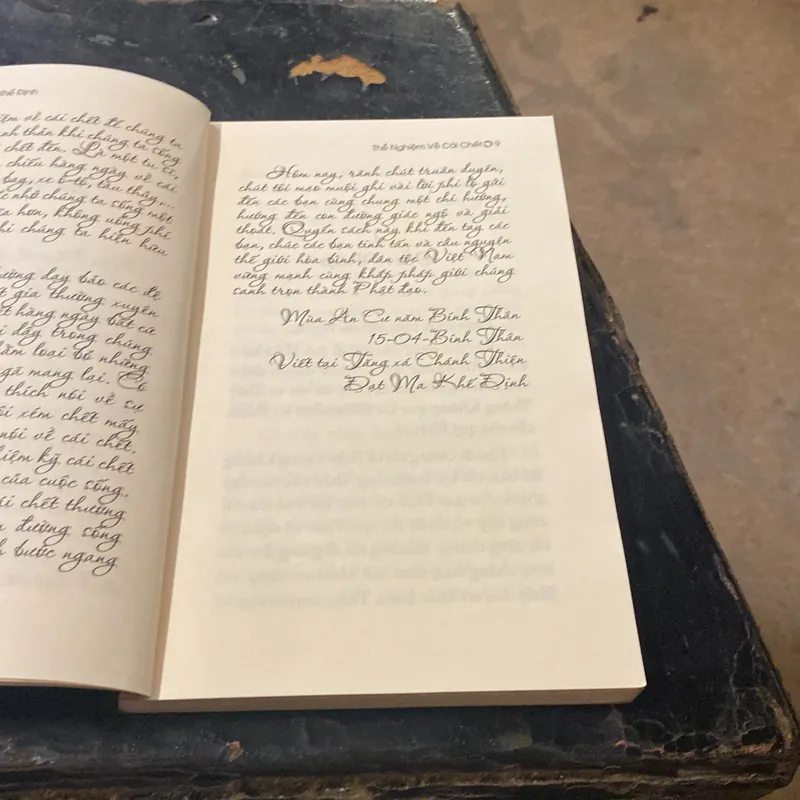 Khế Định
iệm về cái chết để chúng ta
nh thần khi chúng ta sống
chết đến. Là một tu sĩ,
chiếu hàng ngày về cái
bay, xe ô-tô, tàu thủy,...
nhở chúng ta sống một
hơn, không uổng phí
khi chúng ta hiện hữu
ường dạy bảo các đệ
t gia thường xuyên
ết hàng ngày bất cứ
i đây trong chúng
ằm loại bỏ những
gã mang lại. Có
thích nói về sự
ôi xém chết mấy
nói về cái chết.
iệm kỹ cái chết
của cuộc sống.
ái chết thường
n đường sống
h bước ngang
Thể Nghiệm Về Cái Chết 9
Hôm nay, rảnh chút truân duyên,
chút tôi mạo muội ghi vài lời phi lộ gửi
đến các bạn cùng chung một chí hướng,
hướng đến con đường giác ngộ và giải
thoát. Quyển sách này khi đến tay các
bạn, chúc các bạn tinh tấn và cầu nguyện
thế giới hòa bình, dân tộc Việt Nam
vững mạnh cùng khắp pháp giới chúng
sanh trọn thành Phật đạo.
Mùa An Cư năm Bính Thân
15-04-Bính Thân
Viết tại Tăng xá Chánh Thiện
Đạt Ma Khế Định